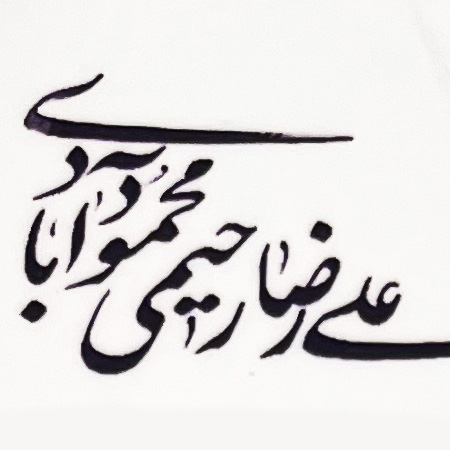 علی رضا رحیمی محمودآبادی